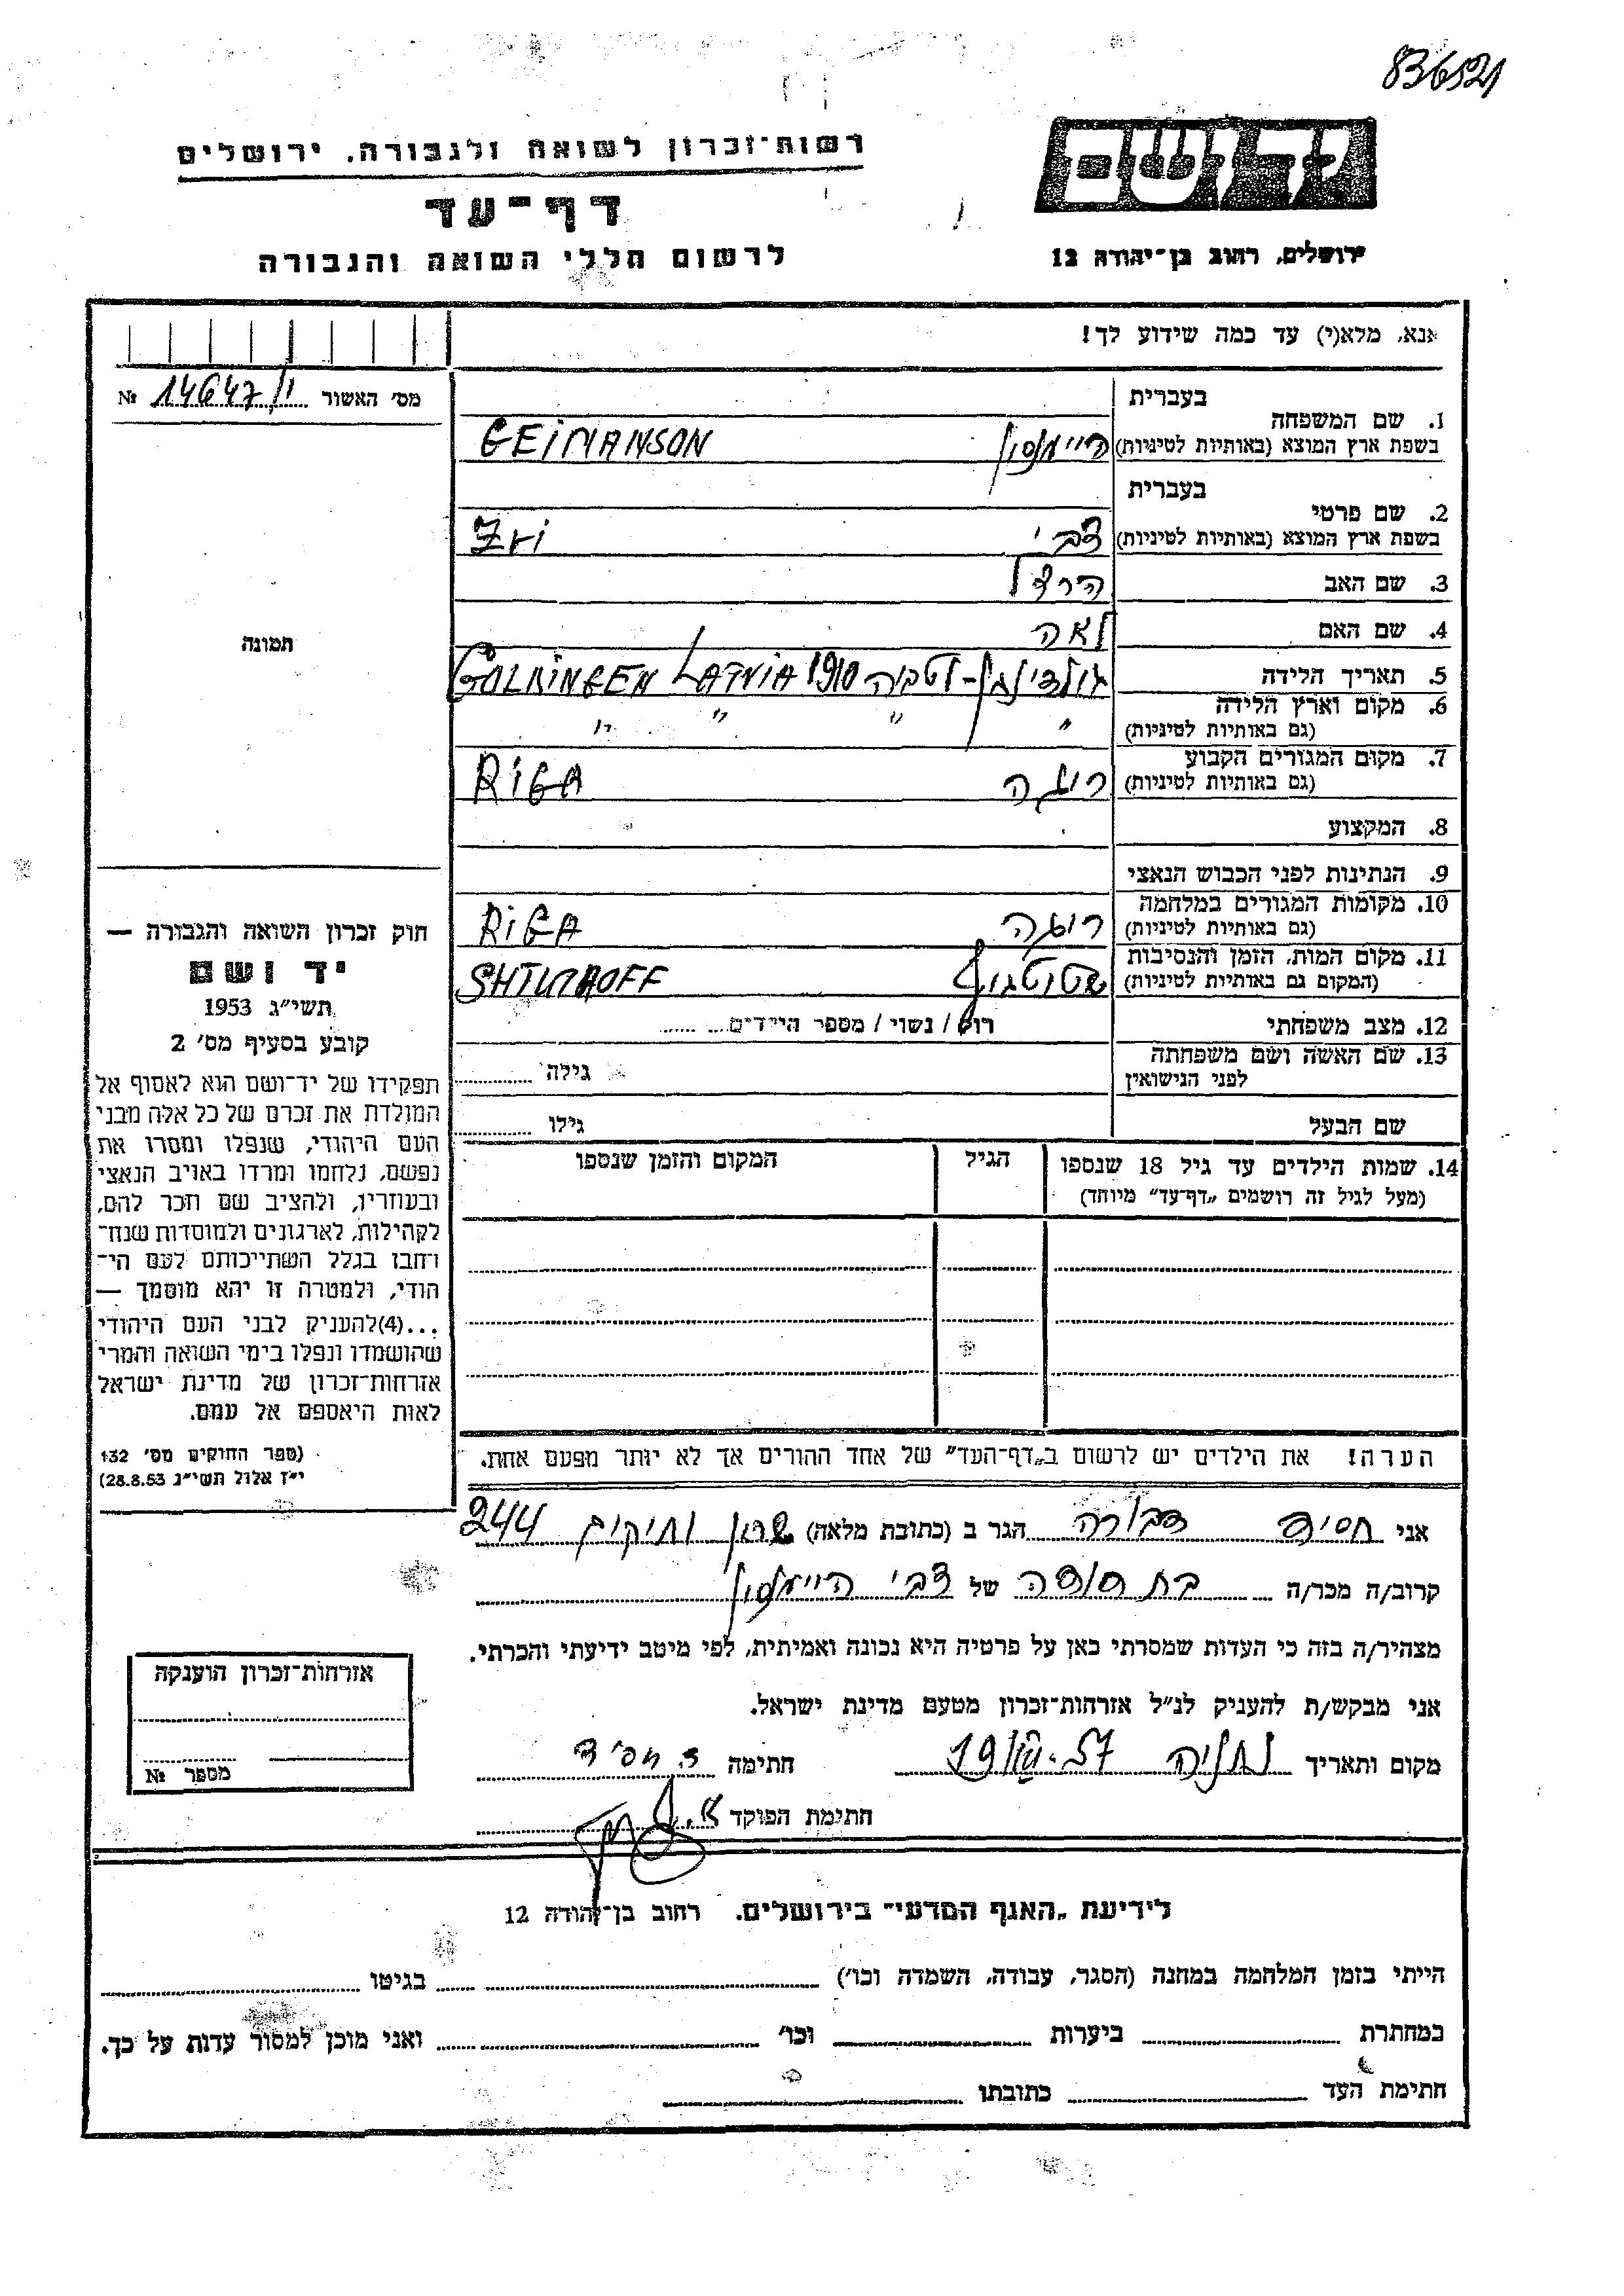 836521
יד ושם
ירושלים, רחוב בן־יהודה 12
רשות־זכרון לשואה ולגבורה, ירושלים
דף־עד
לרשום חללי השואה והגבורה
אנא, מלא(י) עד כמה שידוע לך!
מס׳ האשור 14647/י №
תמונה
1. שם המשפחה
בעברית
בשפת ארץ המוצא (באותיות לטיניות)
היימנסון GEIMANSON
2. שם פרטי
בעברית
בשפת ארץ המוצא (באותיות לטיניות)
צבי Zvi
3. שם האב הרצל
4. שם האם לאה
5. תאריך הלידה גולדינגן - לטביה 1910 GOLDINGEN LATVIA
6. מקום וארץ הלידה
(גם באותיות לטיניות)
" " " "
7. מקום המגורים הקבוע
(גם באותיות לטיניות)
ריגה RIGA
8. המקצוע
9. הנתינות לפני הכבוש הנאצי
10. מקומות המגורים במלחמה
(גם באותיות לטיניות)
ריגה RIGA
11. מקום המות, הזמן והנסיבות
(המקום גם באותיות לטיניות)
שטוטהוף SHTUTHOFF
12. מצב משפחתי רוק / נשוי / מספר הילדים
13. שם האשה ושם משפחתה
לפני הנישואין
גילה
שם הבעל גילו
14. שמות הילדים עד גיל 18 שנספו
(מעל לגיל זה רושמים „דף־עד” מיוחד)
הגיל
המקום והזמן שנספו
חוק זכרון השואה והגבורה —
יד ושם
תשי״ג 1953
קובע בסעיף מס׳ 2
תפקידו של יד־ושם הוא לאסוף אל
המולדת את זכרם של כל אלה מבני
העם היהודי, שנפלו ומסרו את
נפשם, נלחמו ומרדו באויב הנאצי
ובעוזריו, ולהציב שם וזכר להם,
לקהילות, לארגונים ולמוסדות שנח־
רבו בגלל השתייכותם לעם הי־
הודי, ולמטרה זו יהא מוסמך —
...(4)להעניק לבני העם היהודי
שהושמדו ונפלו בימי השואה והמרי
אזרחות־זכרון של מדינת ישראל
לאות היאספם אל עמם.
(ספר החוקים מס׳ 132
י״ז אלול תשי״ג 28.8.53)
הערה! את הילדים יש לרשום ב„דף־העד” של אחד ההורים אך לא יותר מפעם אחת.
אני חסיד דבורה הגר ב (כתובת מלאה) שכון ותיקים 244
קרוב/ה מכר/ה בת דודה של צבי היימנסון
מצהיר/ה בזה כי העדות שמסרתי כאן על פרטיה היא נכונה ואמיתית, לפי מיטב ידיעתי והכרתי.
אני מבקש/ת להעניק לנ״ל אזרחות־זכרון מטעם מדינת ישראל.
מקום ותאריך נתניה חתימה ד. חסיד
חתימת הפוקד
אזרחות־זכרון הוענקה
מספר №
לידיעת „האגף המדעי” בירושלים, רחוב בן־יהודה 12
הייתי בזמן המלחמה במחנה (הסגר, עבודה, השמדה וכו׳) בגיטו
במחתרת ביערות וכו׳ ואני מוכן למסור עדות על כך.
חתימת העד כתובתו